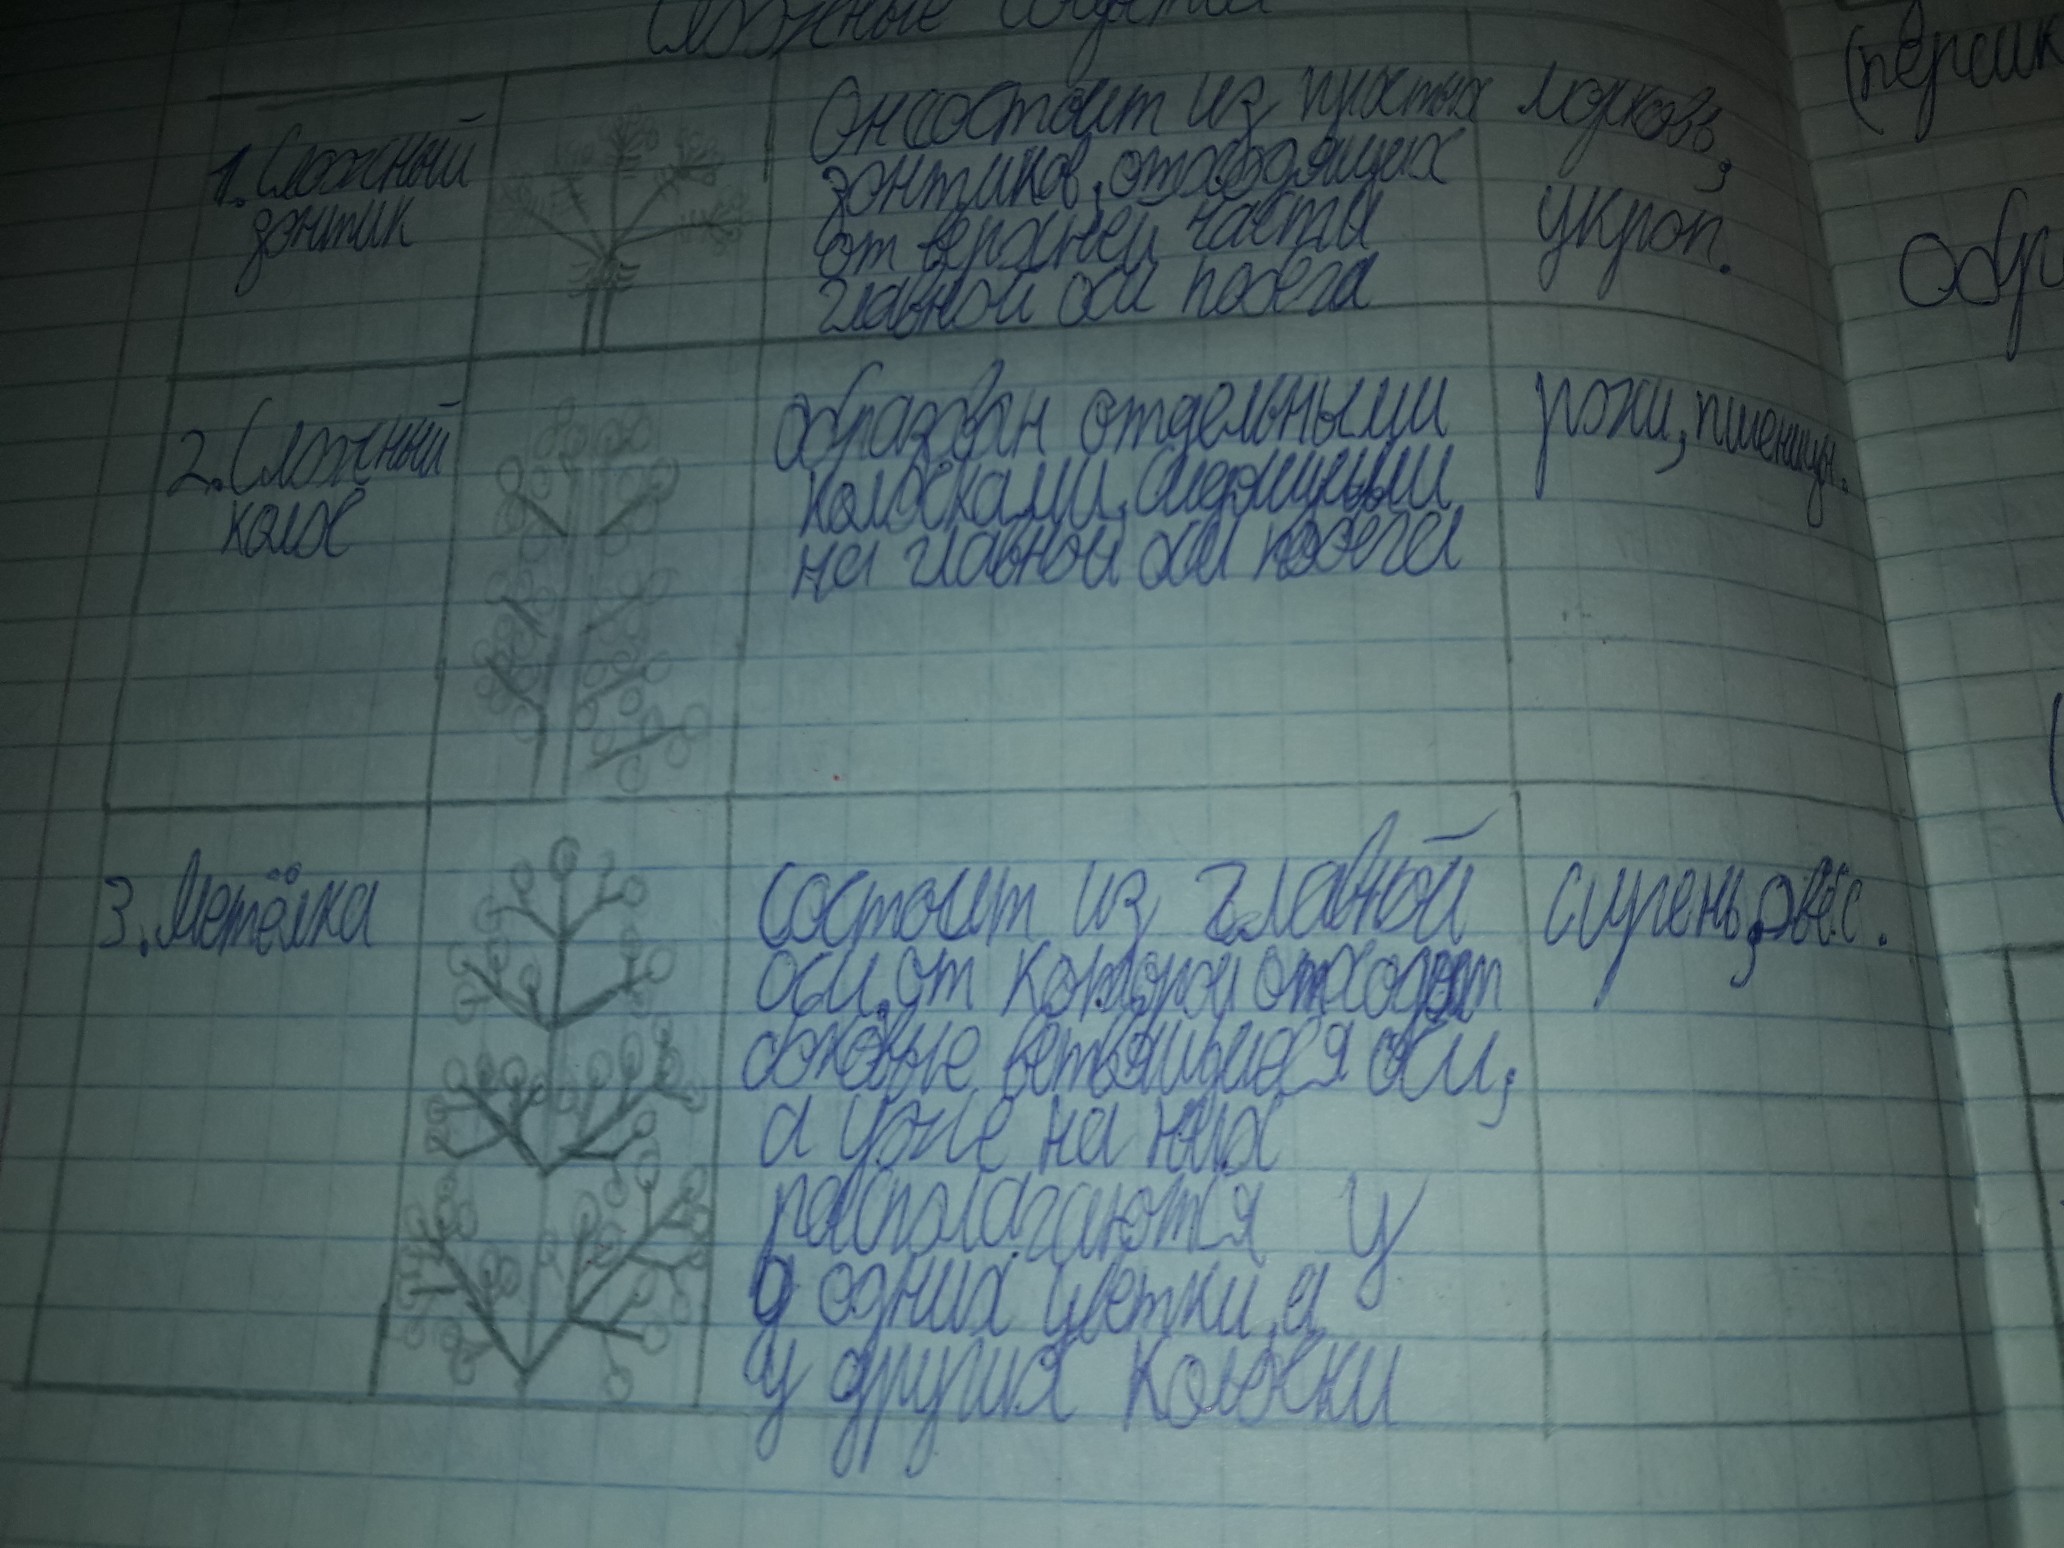 Сложные соцветия
1. Сложный
зонтик
Он состоит из простых
зонтиков, отходящих
от верхней части
главной оси побега
Морковь,
укроп.
2. Сложный
колос
образован отдельными
колосками, сидящими
на главной оси побега
рожи, пшеницы.
3. Метёлка
состоит из главной
оси, от которой отходят
боковые ветвящиеся оси,
а уже на них
располагаются у
одних цветки, а
у других колоски
сирень, овёс.
(персик